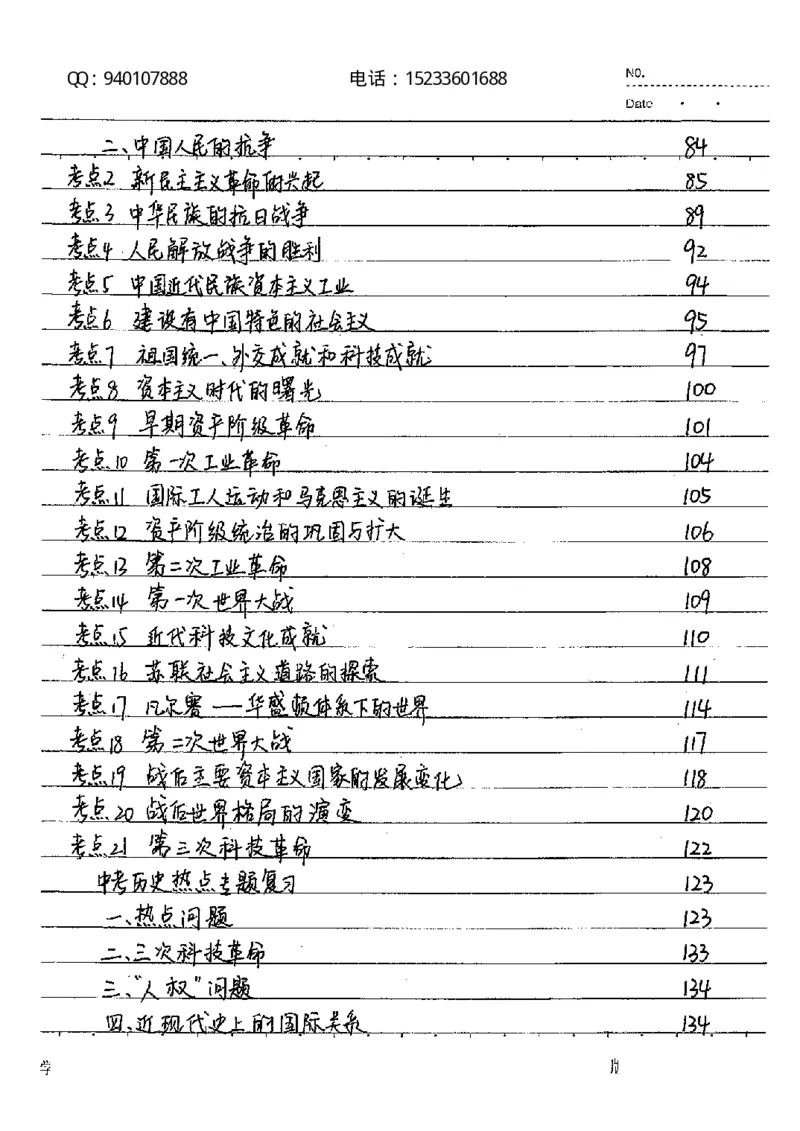 QQ：940107888 电话：15233601688 NO.
Date · ·
二、中国人民的抗争 84
考点2 新民主主义革命的兴起 85
考点3 中华民族的抗日战争 89
考点4 人民解放战争的胜利 92
考点5 中国近代民族资本主义工业 94
考点6 建设有中国特色的社会主义 95
考点7 祖国统一、外交成就和科技成就 97
考点8 资本主义时代的曙光 100
考点9 早期资产阶级革命 101
考点10 第一次工业革命 104
考点11 国际工人运动和马克思主义的诞生 105
考点12 资产阶级统治的巩固与扩大 106
考点13 第二次工业革命 108
考点14 第一次世界大战 109
考点15 近代科技文化成就 110
考点16 苏联社会主义道路的探索 111
考点17 凡尔赛——华盛顿体系下的世界 114
考点18 第二次世界大战 117
考点19 战后主要资本主义国家的发展变化 118
考点20 战后世界格局的演变 120
考点21 第三次科技革命 122
中考历史热点专题复习 123
一、热点问题 123
二、三次科技革命 133
三、“人权”问题 134
四、近现代史上的国际关系 134
学